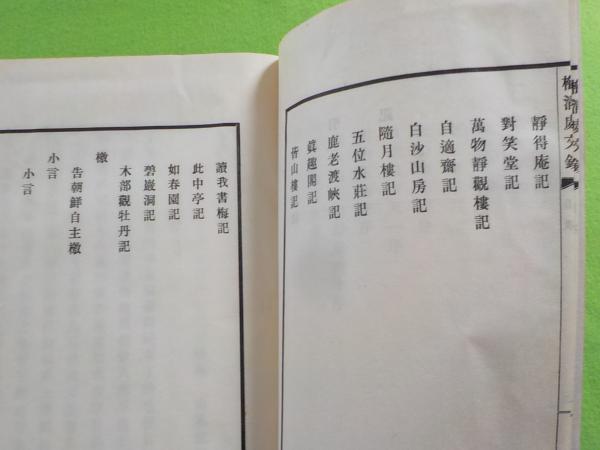 靜得庵記
對笑堂記
萬物靜觀樓記
自適齋記
白沙山房記
隨月樓記
五位水莊記
鹿老渡峽記
眞趣閣記
皆山樓記
讀我書梅記
此中亭記
如春園記
碧巖洞記
木部觀牡丹記
檄
告朝鮮自主檄
小言
小言